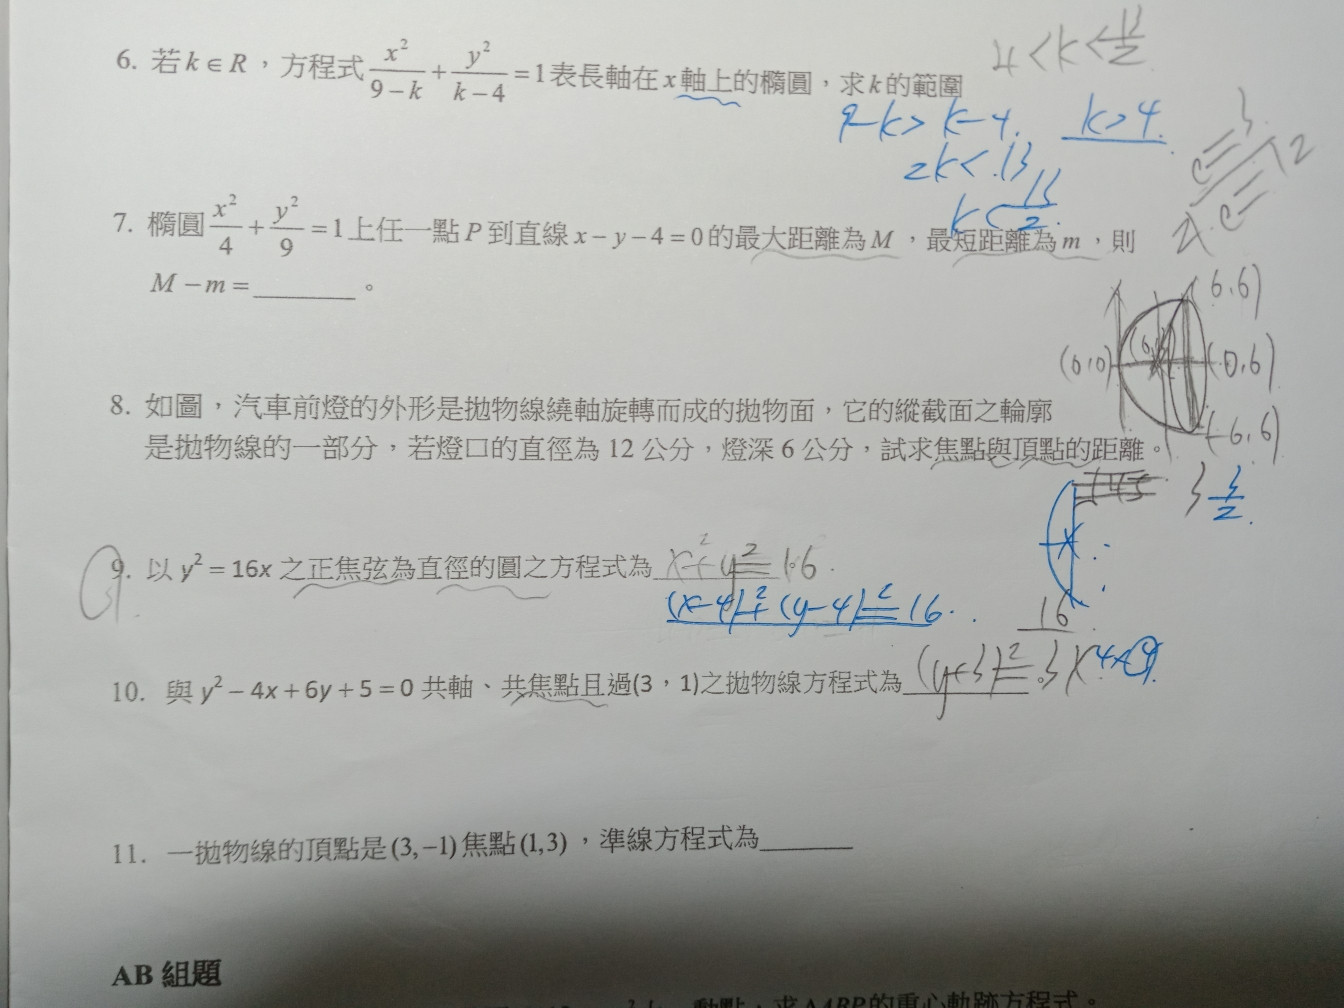 6. 若 k ∈ R，方程式 x²/(9-k) + y²/(k-4) = 1 表長軸在 x 軸上的橢圓，求 k 的範圍
4<k<13/2
9-k> k-4. k>4.
2k<.13
k<13/2.
7. 橢圓 x²/4 + y²/9 = 1 上任一點 P 到直線 x-y-4=0 的最大距離為 M，最短距離為 m，則
M-m=________。
(6.6)
(0,6)
(-6,6)
8. 如圖，汽車前燈的外形是拋物線繞軸旋轉而成的拋物面，它的縱截面之輪廓
是拋物線的一部分，若燈口的直徑為 12 公分，燈深 6 公分，試求焦點與頂點的距離。
3 3/2.
9. 以 y²=16x 之正焦弦為直徑的圓之方程式為 x²+y²=16.
(x-4)²+(y-4)²=16.
16
10. 與 y²-4x+6y+5=0 共軸、共焦點且過(3，1)之拋物線方程式為 (y+3)²=
11. 一拋物線的頂點是(3,-1)焦點(1,3)，準線方程式為________
AB 組題
動點，求ΔABP的重心軌跡方程式。